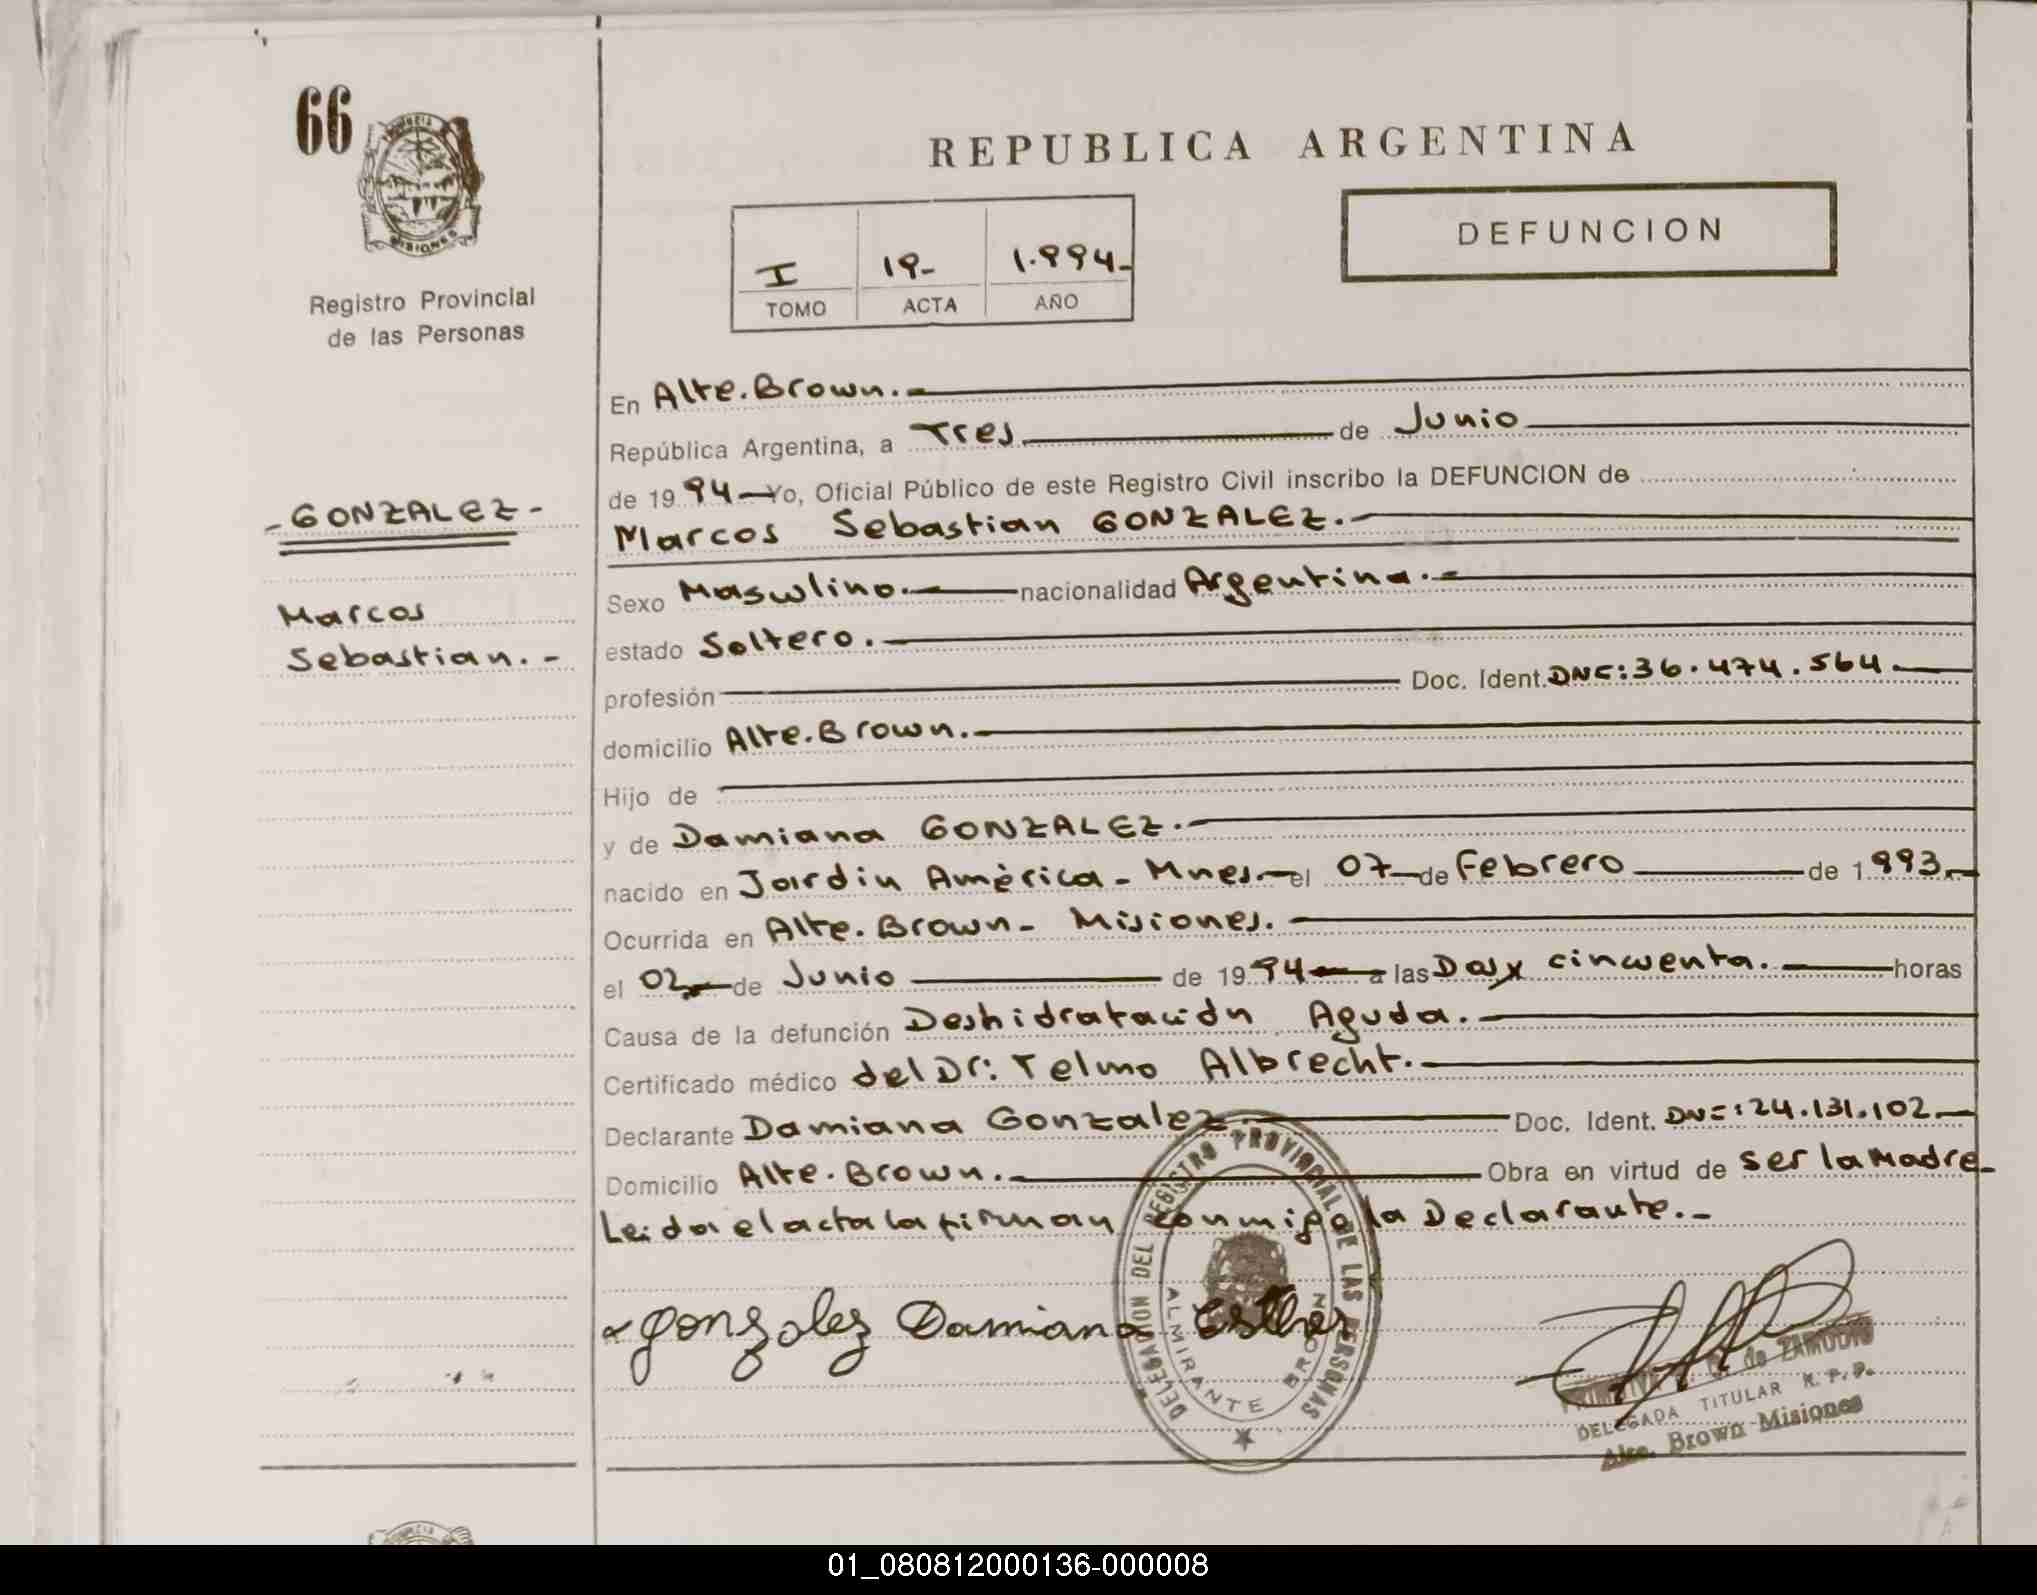 66
PROVINCIA
MISIONES
Registro Provincial
de las Personas
- GONZALEZ -
Marcos
Sebastian. -
REPUBLICA ARGENTINA
DEFUNCION
I 19- 1.994-
TOMO ACTA AÑO
En Alte. Brown.-
República Argentina, a Tres de Junio
de 1994 Yo, Oficial Público de este Registro Civil inscribo la DEFUNCION de
Marcos Sebastian GONZALEZ.-
Sexo Masculino.- nacionalidad Argentina.-
estado Soltero.-
profesión Doc. Ident. DNI: 36.474.564.-
domicilio Alte. Brown.-
Hijo de
y de Damiana GONZALEZ.-
nacido en Jardin América - Mnes.- el 07 de Febrero de 1993.-
Ocurrida en Alte. Brown - Misiones.-
el 02 de Junio de 1994 a las Dos y cincuenta.- horas
Causa de la defunción Deshidratación Aguda.-
Certificado médico del Dr: Telmo Albrecht.-
Declarante Damiana Gonzalez Doc. Ident. DNI: 24.131.102.-
Domicilio Alte. Brown.- Obra en virtud de ser la Madre-
Leida el acta la firman conmigo la Declarante.-
Gonzalez Damiana Esther
DELEGACION DEL REGISTRO PROVINCIAL DE LAS PERSONAS
ALMIRANTE BROWN
de ZAMUDIO
DELEGADA TITULAR R.P.P.
Alte. Brown-Misiones
01_080812000136-000008